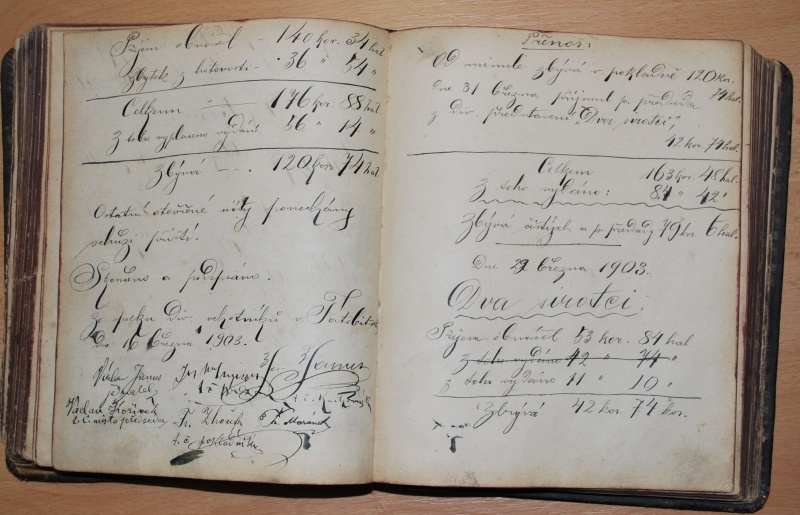 Příjem obnášel – 140 kor. 34 hal
zbytek z hotovosti – 36 " 54 "
Celkem – 176 kor. 88 hal
z toho vyplaceno vydání 56 " 14 "
zbývá – . 120 kor. 74 hal
Ostatní otevřené účty ponechány
schůzi příští.
Skončeno a podepsáno.
Ze spolku Div. ochotníků v
dne 16 března 1903.
Václav
t. č. místopředseda
t. č. pokladník
Přenos:
Od minule zbývá v pokladně 120 kor.
74 hal.
dne 31 března přijmul p. předseda
z div. představení „Dva sirotci",
42 kor. 74 hal.
Celkem 163 kor. 48 hal.
Z toho vydáno: 84 " 42 "
Zbývá čistých u p. předsedy 79 kor. 6 hal.
Dne 29 března 1903.
Dva sirotci;
Příjem obnášel 53 kor. 84 hal
z toho vydáno 42 " 74 "
z toho vydáno 11 " 10 "
Zbývá 42 kor. 74 kor.